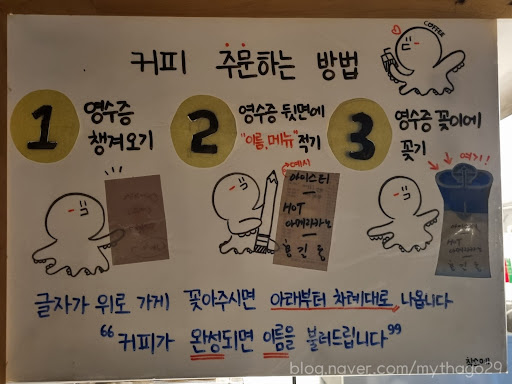 COFFEE
커피 주문하는 방법
1 영수증 챙겨오기
2 영수증 뒷면에 "이름, 메뉴" 적기
3 영수증 꽂이에 꽂기
예시
아이스티
HOT
아메리카노
여기!
HOT
글자가 위로 가게 꽂아주시면 아래부터 차례대로 나옵니다
"커피가 완성되면 이름을 불러드립니다"
blog.naver.com/mythago29.